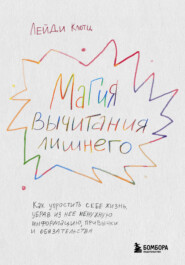 ЛЕЙДИ КЛОТЦ
МАГИЯ
ВЫЧИТАНИЯ
ЛИШНЕГО
КАК УПРОСТИТЬ СЕБЕ ЖИЗНЬ,
УБРАВ ИЗ НЕЕ НЕНУЖНУЮ
ИНФОРМАЦИЮ, ПРИВЫЧКИ
И ОБЯЗАТЕЛЬСТВА
БОМБОРА